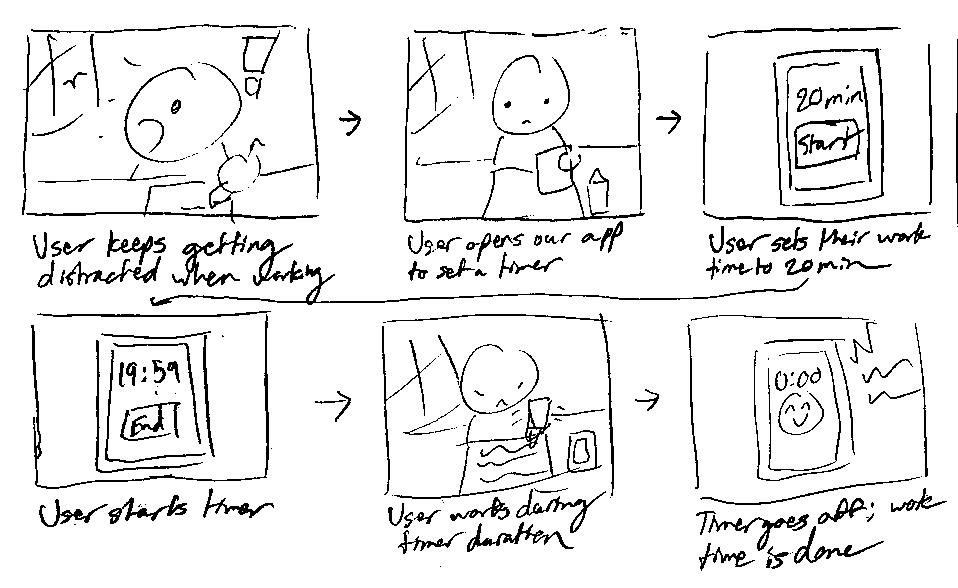 20min
Start
User keeps getting
distracted when working
User opens our app
to set a timer
User sets their work
time to 20min
19:59
End
0:00
User starts timer
User works during
timer duration
Timer goes off; work
time is done